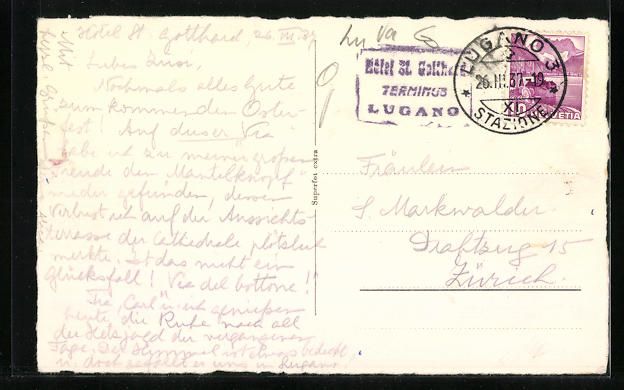 Hôtel St. Gotthard 26.III.37
Liebes Susi,
Nochmals alles Gute
zum kommenden Oster-
fest! Auf dieser Via
habe ich zu meiner grossen
Freude den Mantelknopf
wieder gefunden, dessen
Verlust ich auf der Aussichts-
terrasse der Cathedrale plötzlich
merkte. Ist das nicht ein
Glücksfall! Via del bottone!"
Carl u. ich geniessen
heute die Ruhe nach all
der Hetzjagd der vergangenen
Tage. Der Himmel ist etwas bedeckt,
doch uns in Lugano
Mit
Superfot extra
Hôtel St. Gotth
TERMINUS
LUGANO
LUGANO 3
26.III.37-19
XI
STAZIONE
10
HELVETIA
Fräulein
S. Markwalder
15
Zürich.